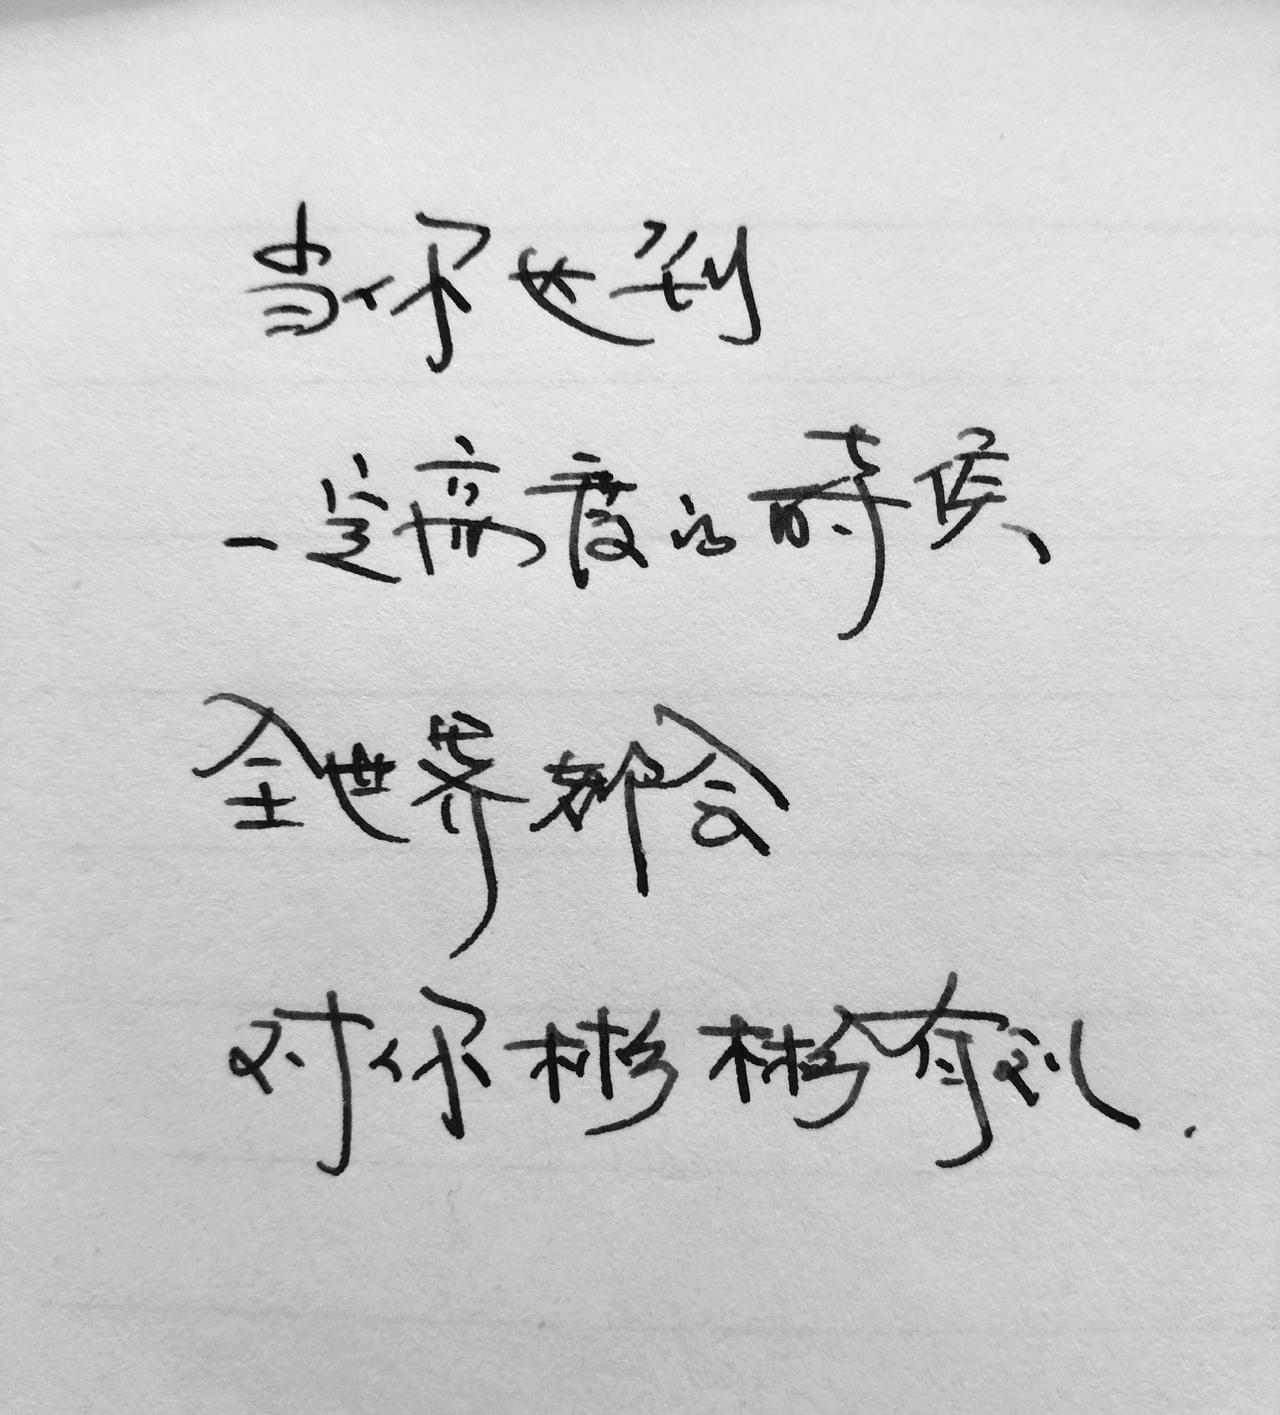 当你达到
一定高度的时候、
全世界都会
对你彬彬有礼.